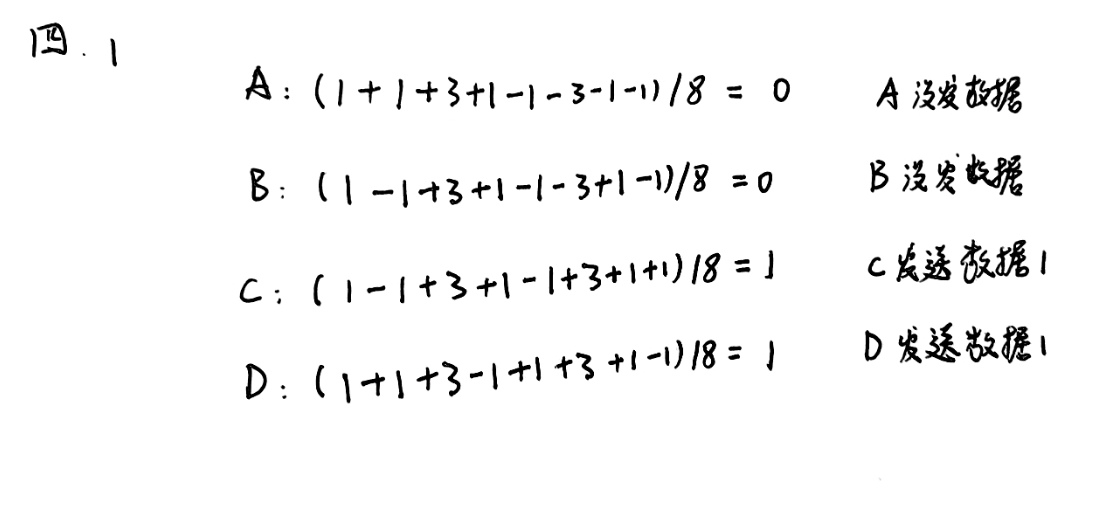 四.1
A: (1+1+3+1-1-3-1-1)/8 = 0 A没发数据
B: (1-1+3+1-1-3+1-1)/8 = 0 B没发数据
C: (1-1+3+1-1+3+1+1)/8 = 1 C发送数据1
D: (1+1+3-1+1+3+1-1)/8 = 1 D发送数据1